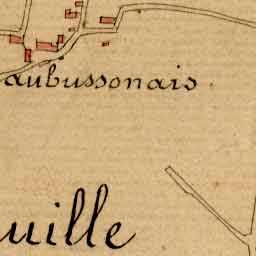 aubussonais
uille